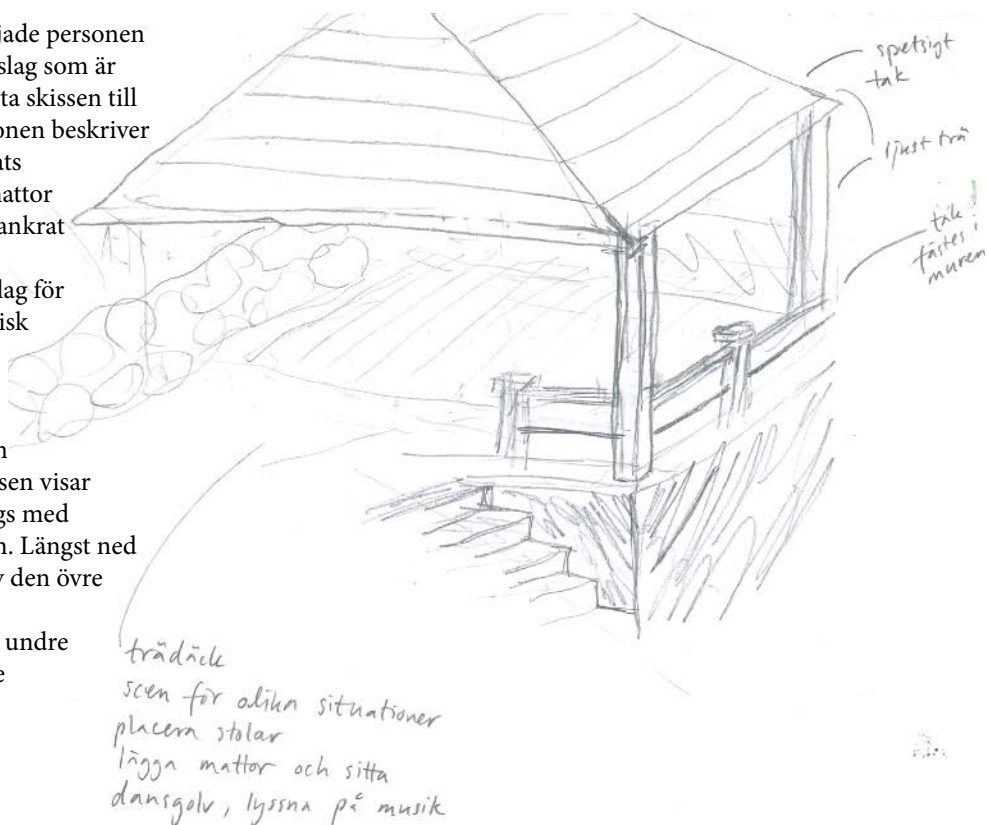 jade personen
slag som är
ta skissen till
onen beskriver
ats
nattor
ankrat
lag för
isk
n
sen visar
gs med
n. Längst ned
v den övre
undre
e
spetsigt
tak
ljust trä
tak
fästes i
muren
trädäck
scen för olika situationer
placera stolar
lägga mattor och sitta
dansgolv, lyssna på musik